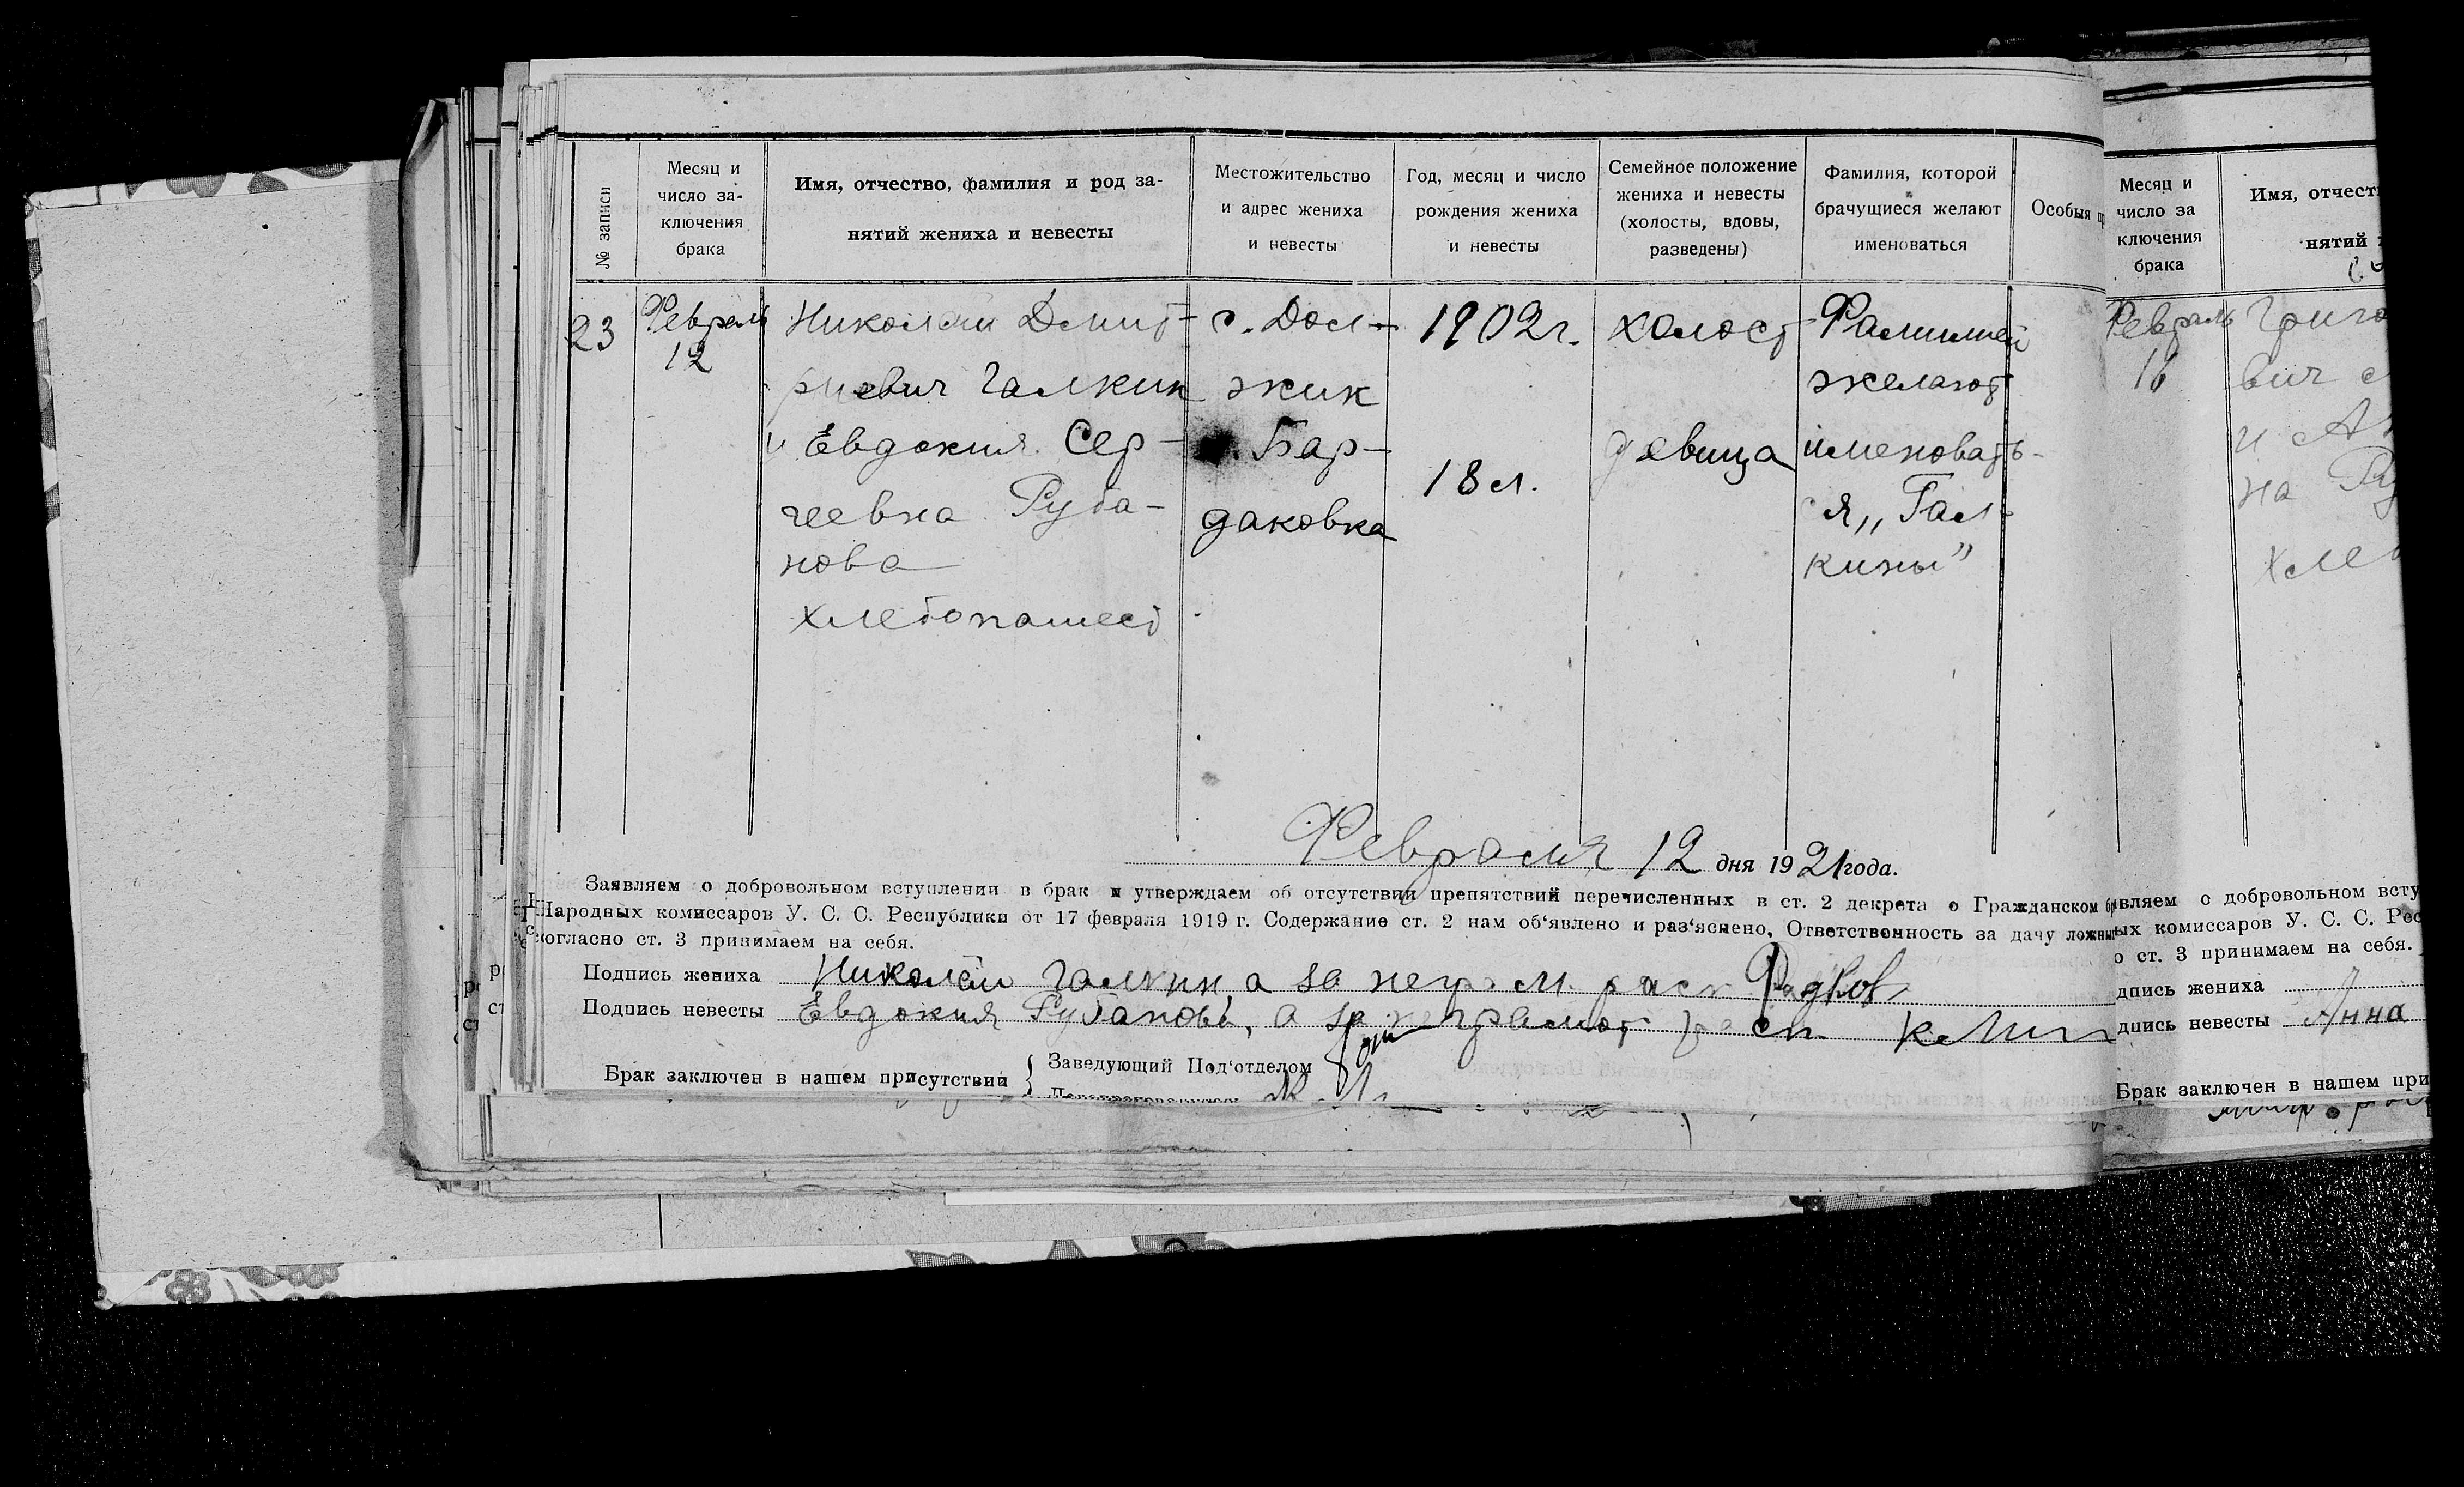 № записи
Месяц и
число за-
ключения
брака
Имя, отчество, фамилия и род за-
нятий жениха и невесты
Местожительство
и адрес жениха
и невесты
Год, месяц и число
рождения жениха
и невесты
Семейное положение
жениха и невесты
(холосты, вдовы,
разведены)
Фамилия, которой
брачущиеся желают
именоваться
Особыя
23
Февраль
12
Николай Дмит-
риевич Галкин
и Евдокия Сер-
геевна Руба-
нова
хлебопашест
с. Дол-
жик
Бар-
даковка
1902 г.
18 л.
холост
девица
Фамилией
желают
именовать-
ся „Гал-
кины”
Февраля 12 дня 1921 года.
Заявляем о добровольном вступлении в брак и утверждаем об отсутствии препятствий перечисленных в ст. 2 декрета о Гражданском
Народных комиссаров У. С. С. Республики от 17 февраля 1919 г. Содержание ст. 2 нам об‘явлено и раз‘яснено, Ответственность за дачу
согласно ст. 3 принимаем на себя.
Подпись жениха Николай Галкин, а за неграм. расп
Подпись невесты Евдокия Рубанова, а за неграмот расп
Брак заключен в нашем присутствии { Заведующий Под‘отделом
Месяц и
число за
ключения
брака
Имя, отчест
нятий
Февраль
16
Григо
вич
и
на
вляем о добровольном всту
ых комиссаров У. С. С. Рес
о ст. 3 принимаем на себя.
дпись жениха
дпись невесты Анна
Брак заключен в нашем при